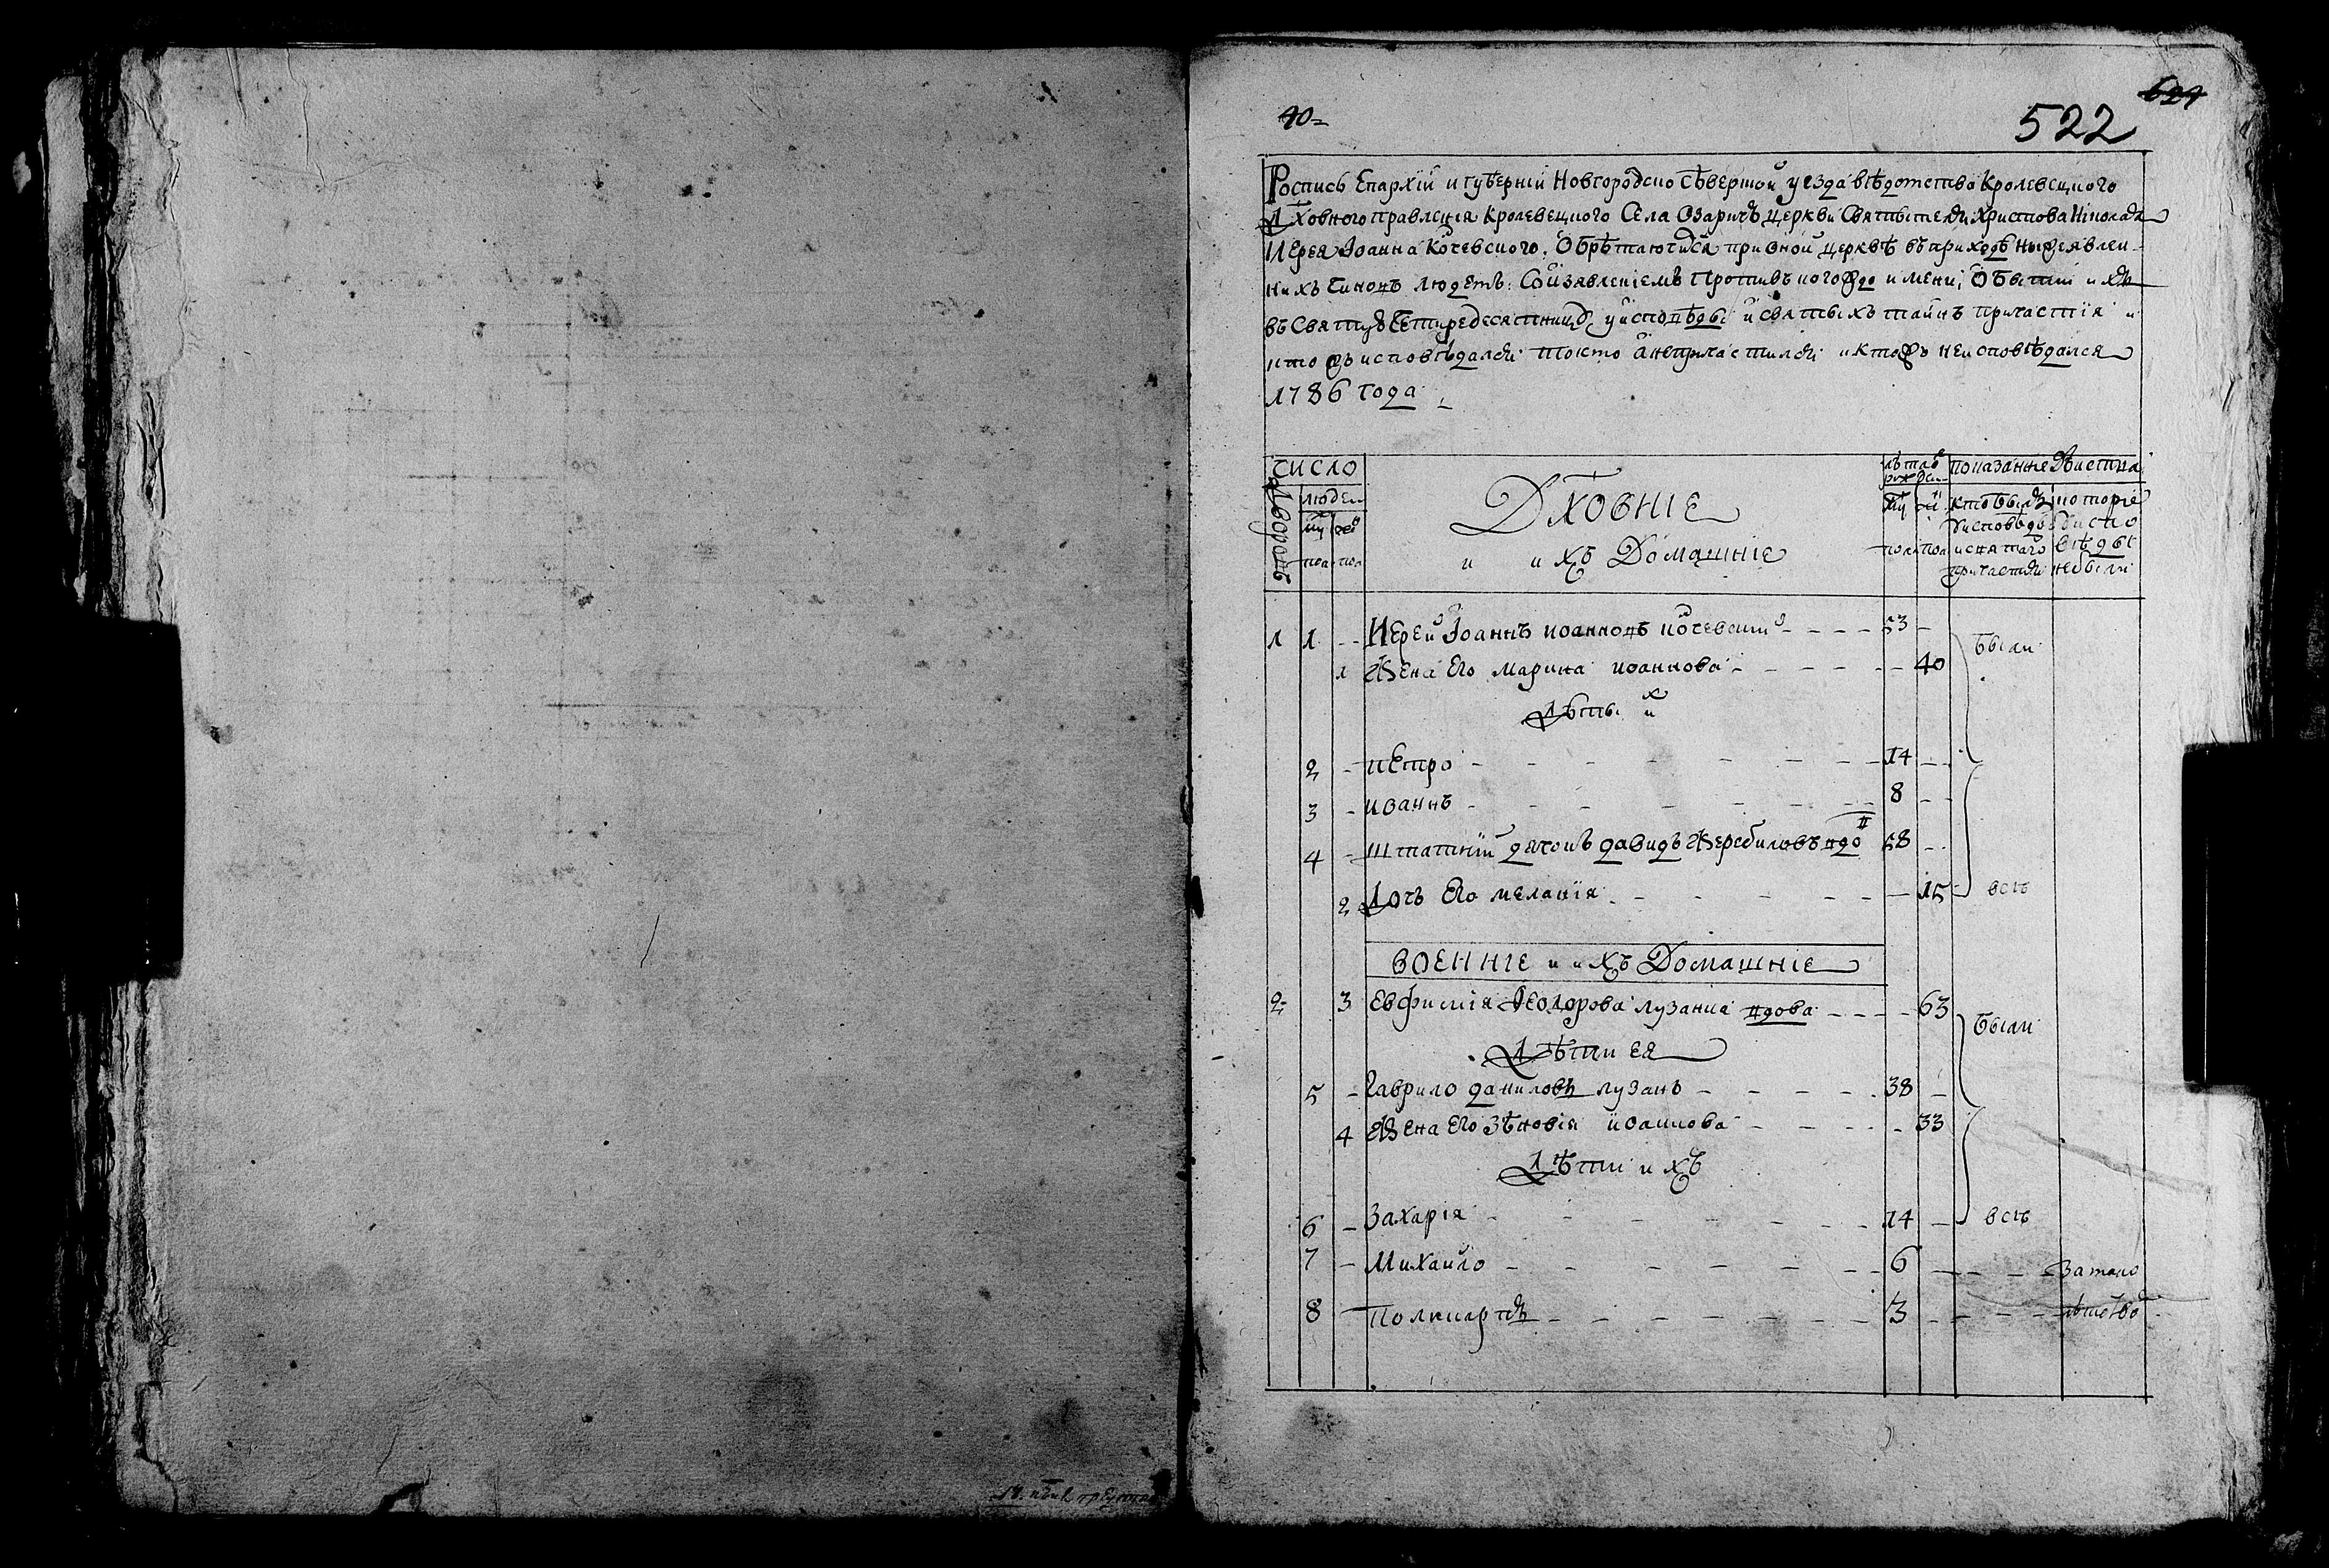 40=
522
Роспись Епархїй и губерніи Новгородско Сѣверской уезда вѣдомства Кролевецкого
Дховного правленія Кролевецкого Села Озаричъ церкви Святытеля Христова Николая
Иерея Іоанна Кочевского. Обрѣтаючихся при оной церквѣ въ приходѣ нижеявлен-
нихъ чиновъ людехъ. Соизявленіемъ противъ когождо имени, О бытіи ихъ
въ Святую Четиредесятницу у исповѣды и святыхъ тайнъ причастія и
кто жъ исповѣдался токмо а не причастился и ктожъ не исповѣдался
1786 года
Число
Дворовъ
Людей
му же
пол пол
Дховніе
и ихъ Домашніе
лѣта о рожден
му же
пол пол
показанне дѣиства
кто былъ у исповѣди и святаго причастия
которіе у исповѣды не были
1 1 -- Иерей Іоаннъ иоанновъ кочевский - - - - 53 -
1 Жена его марина иоаннова - - - - - 40
были
Дѣты их
2 - петро - - - - - - - 14 --
3 - иоаннъ - - - - - - - 8 --
4 - штатній дячокъ давидъ Жеребиловъ вдо 58 --
2 Дочъ его меланїя - - - - - - 15
всѣ
военніе и ихъ Домашніе
2- 3 Евфимія Ѳеодорова лузанка вдова - - - - 63
были
Дѣти ея
5 - Гаврило даниловъ лузанъ - - - - - 38 -
4 Жена его Зѣновія иоаннова - - - - - 33
Дѣти ихъ
6 - Захарія - - - - - - 14 -
всѣ
7 - Михайло - - - - - - 6 - - - - за мало
8 - Поликарпъ - - - - - - - 3 - - - - лѣтство